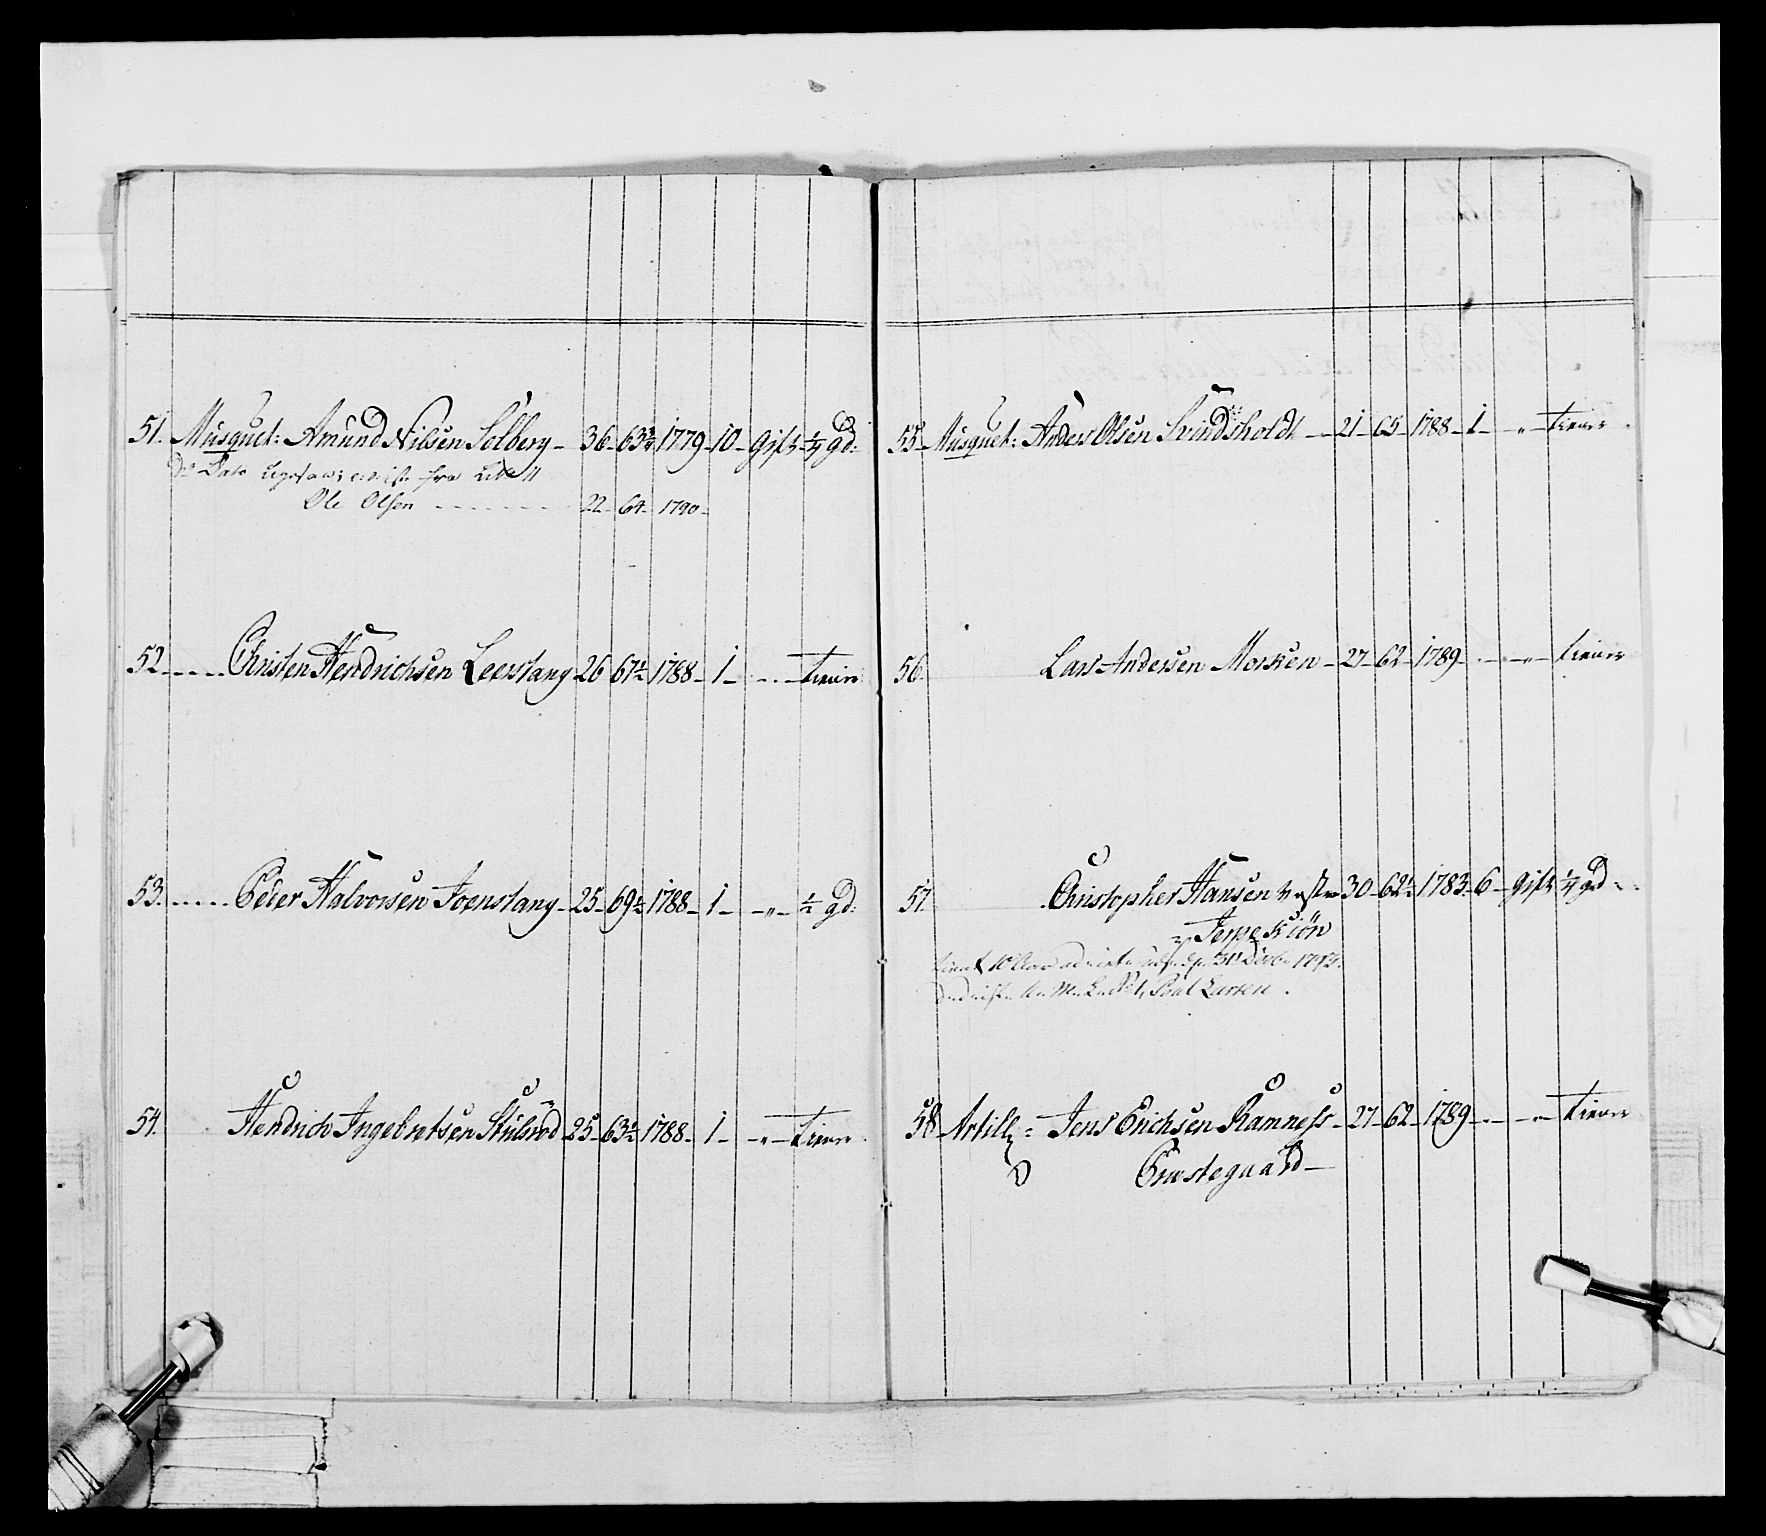 51. Musquet: Amund Nilsen Solberg – 36 – 63 3/4 1779 – 10 – Gift – 1/4 gd:
Ole Olsen – 22 – 64 – 1790 –
52 Christen Hendrichsen Leerstang 26 67 1/2 1788 – 1 – tiener
53. Peder Halvorsen Joenstang – 25 – 69 1/2 1788 – 1 – „ – 1/2 gd:
54. Hendrich Ingebretsen Stulsrød 25 – 63 1/2 1788 – 1 – „ – tiener
55 Musquet: Anders Olsen Svindsholdt – 21 – 65 – 1788 – 1 – „ – tiener
56. Lars Andersen Morken – 27 – 62 – 1789 – „ – tiener
57. Christopher Hansen 30 – 62 1/2 1783 – 6 – gift 1/4 gd
Jerpekiøn
Poul Larsen.
58 Artill: Jens Erichsen Ramness – 27 – 62 – 1789 – „ – tiener
Præstegaard –